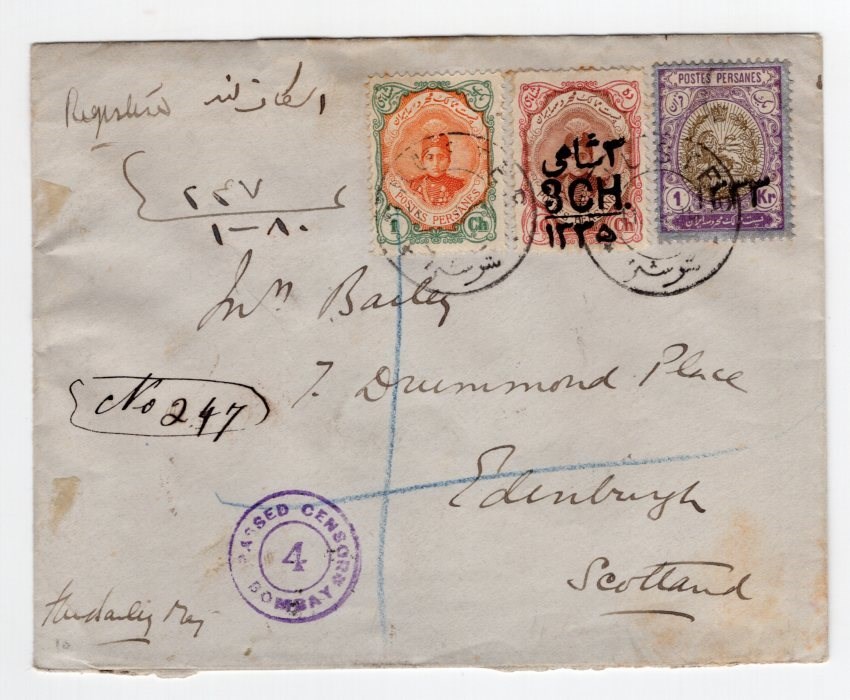 Registered
۲۴۷
۱-۸۰
۱ POSTES PERSANES
1 Ch
۳ شاهی
3CH.
۱۳۳۵
Ch
POSTES PERSANES
1 Kr
۱۳۳۳
شوشتر
شوشتر
Mrs Bailey
7. Drummond Place
Edinburgh
Scotland
No 247
PASSED CENSOR
4
BOMBAY